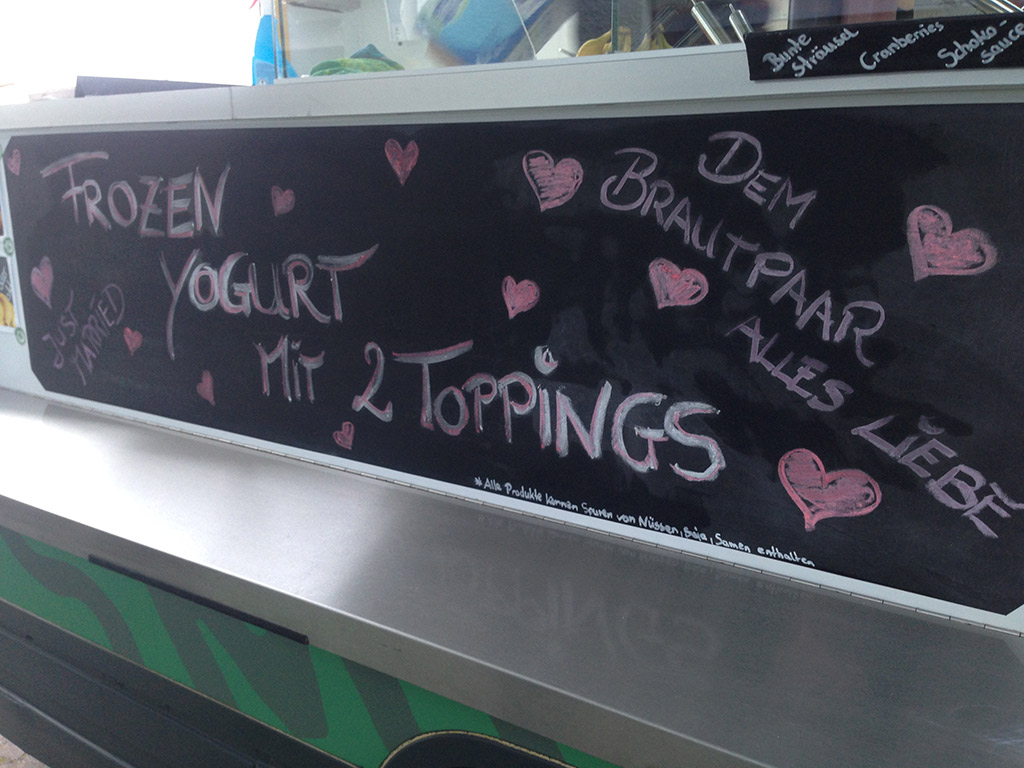 Bunte
Sträusel
Cranberries
Schoko
sauce
FROZEN
YOGURT
MIT 2 TOPPINGS
JUST
MARRIED
DEM
BRAUTPAAR
ALLES LIEBE
* Alle Produkte können Spuren von Nüssen, Soja, Samen enthalten